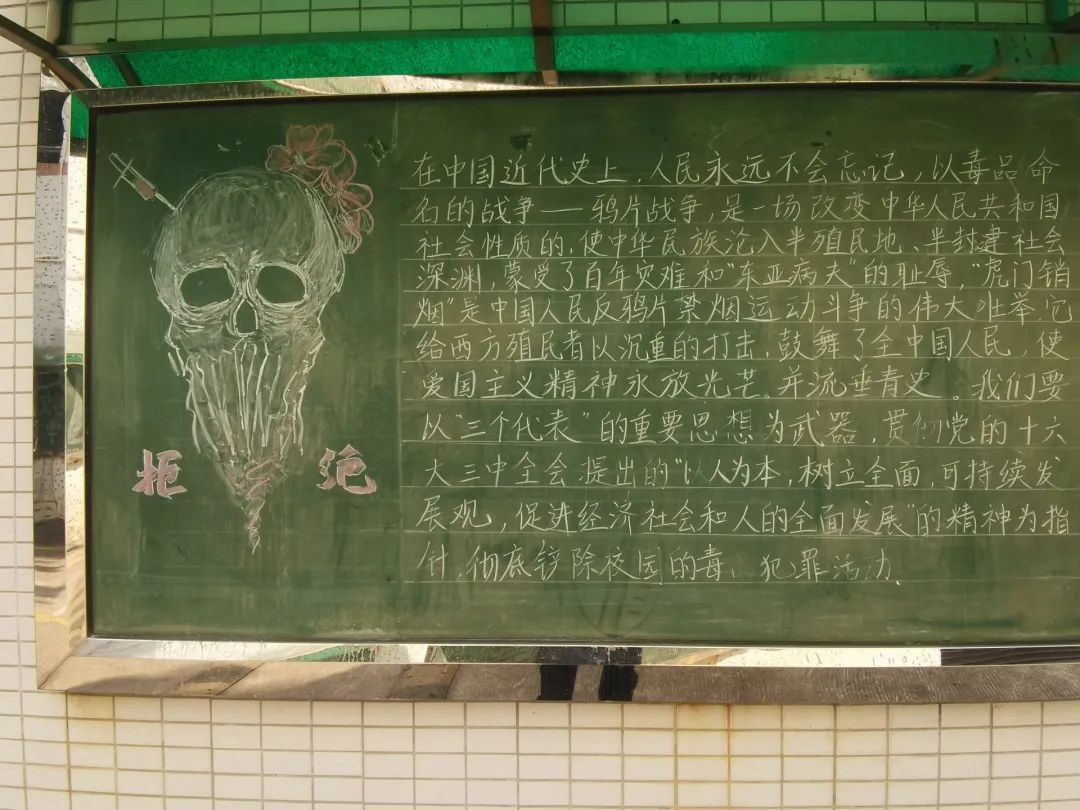 在中国近代史上，人民永远不会忘记，以毒品命
名的战争——鸦片战争，是一场改变中华人民共和国
社会性质的，使中华民族沦入半殖民地、半封建社会
深渊，蒙受了百年灾难和“东亚病夫”的耻辱，“虎门销
烟”是中国人民反鸦片禁烟运动斗争的伟大壮举，它
给西方殖民者以沉重的打击，鼓舞了全中国人民，使
爱国主义精神永放光芒。并流垂青史。我们要
以“三个代表”的重要思想为武器，贯彻党的十六
大三中全会提出的“以人为本，树立全面，可持续发
展观，促进经济社会和人的全面发展”的精神为指
针，彻底铲除校园的毒 犯罪活动.
拒绝